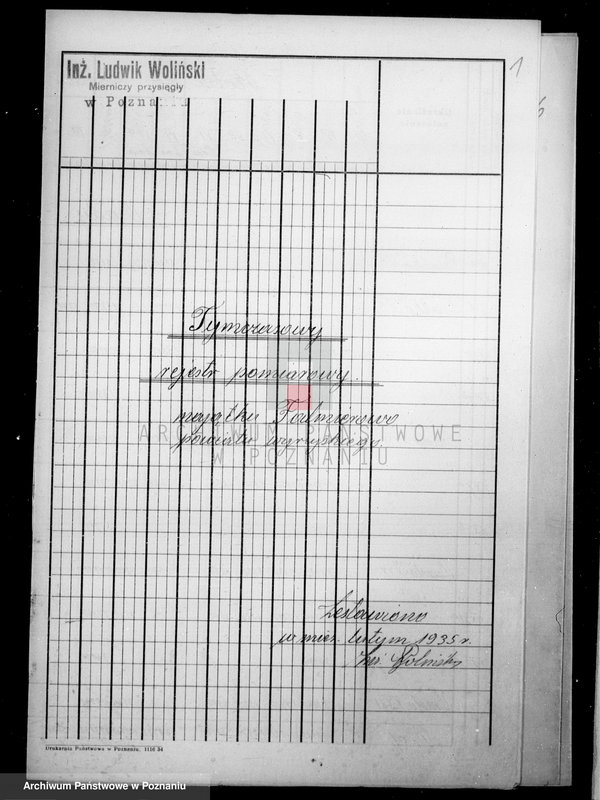 Inż. Ludwik Woliński
Mierniczy przysięgły
w Poznaniu
1
6
Tymczasowy
rejestr pomiarowy.
majątku Falmierowo
powiatu wyrzyskiego.
ARCHIWUM PAŃSTWOWE
W POZNANIU
Zestawiono
w mies. lutym 1935 r.
Inż. Woliński
Drukarnia Państwowa w Poznaniu. 1116 34
Archiwum Państwowe w Poznaniu